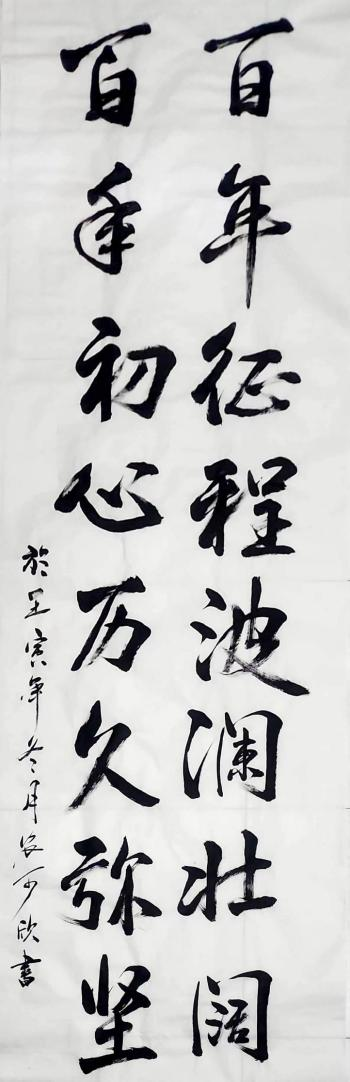 百年征程波澜壮阔
百年初心历久弥坚
於壬寅年冬月安可欣書